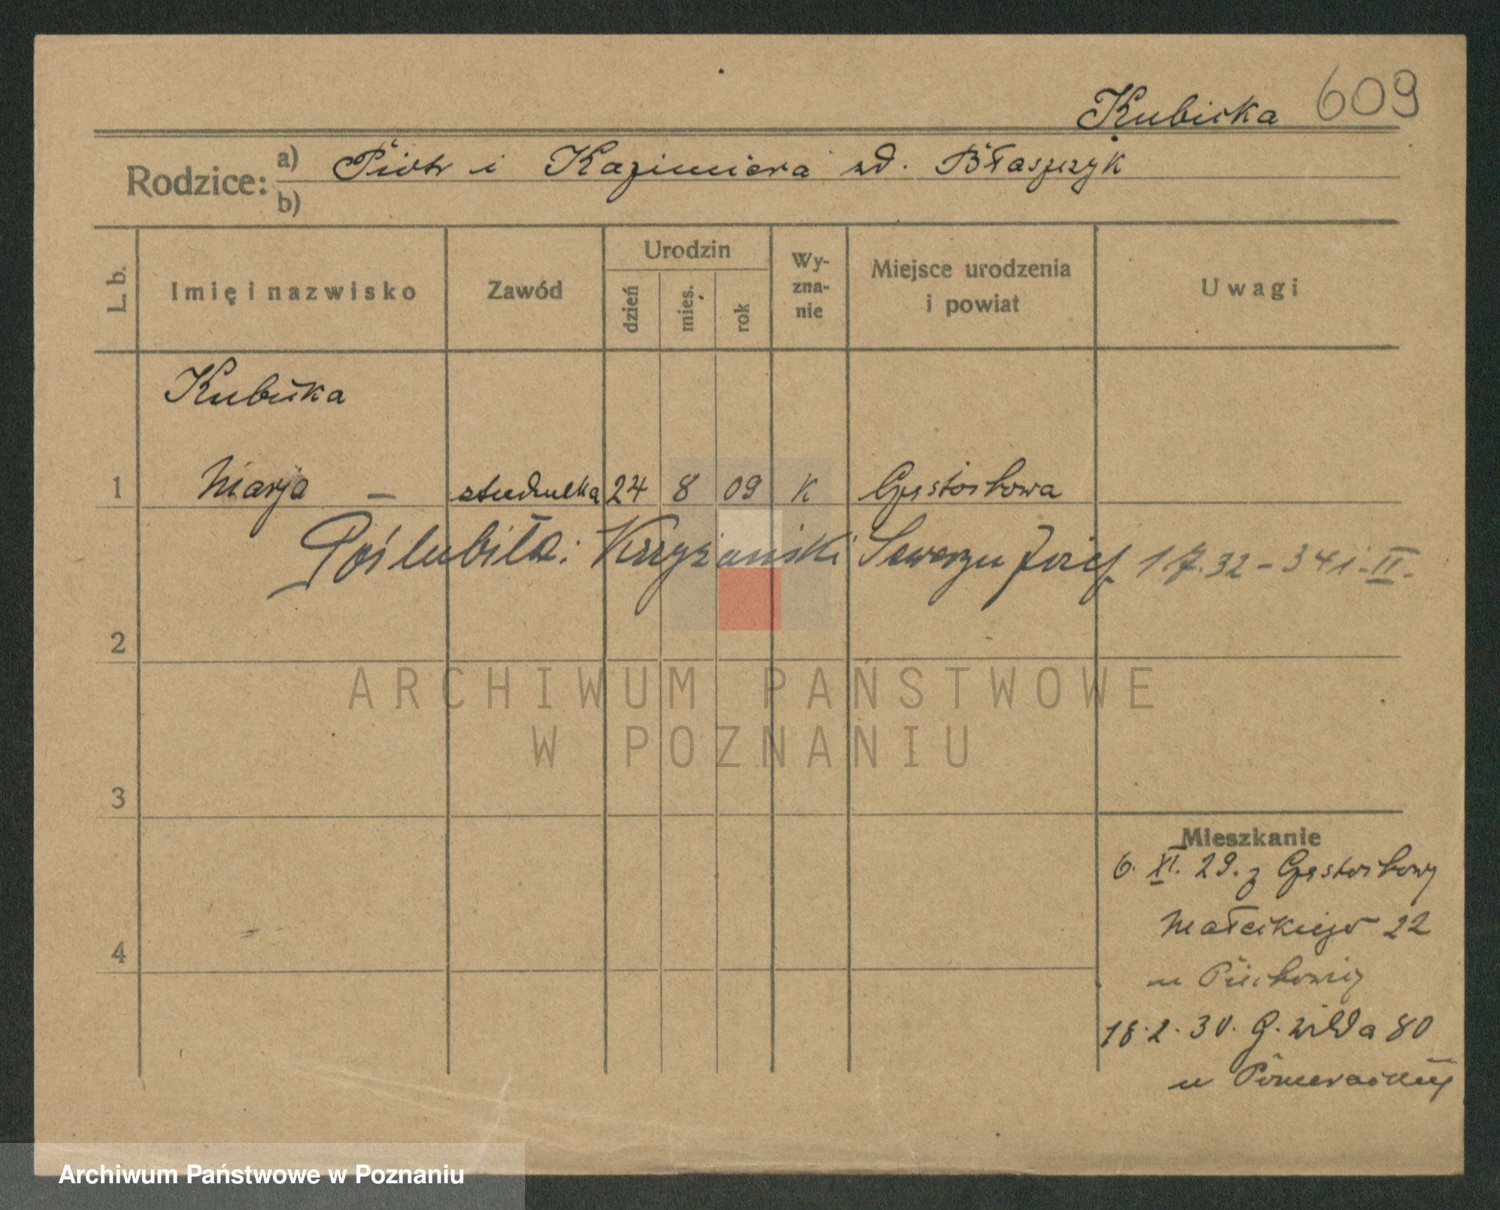 Kubicka 609
Rodzice: a) Piotr i Kazimiera zd. Błaszczyk
b)
L. b. Imię i nazwisko Zawód Urodzin dzień mies. rok Wyznanie Miejsce urodzenia i powiat Uwagi
Kubicka
1 Marja — studentka 24 8 09 K Częstochowa
Poślubiła: Krzyżański Seweryn Józef 1.7.32 - 341.II.
2
ARCHIWUM PAŃSTWOWE
W POZNANIU
3
4
Mieszkanie
6. XI. 29. z Częstochowy
Małeckiego 22
u
18.2.30. G. Wilda 80
u
Archiwum Państwowe w Poznaniu